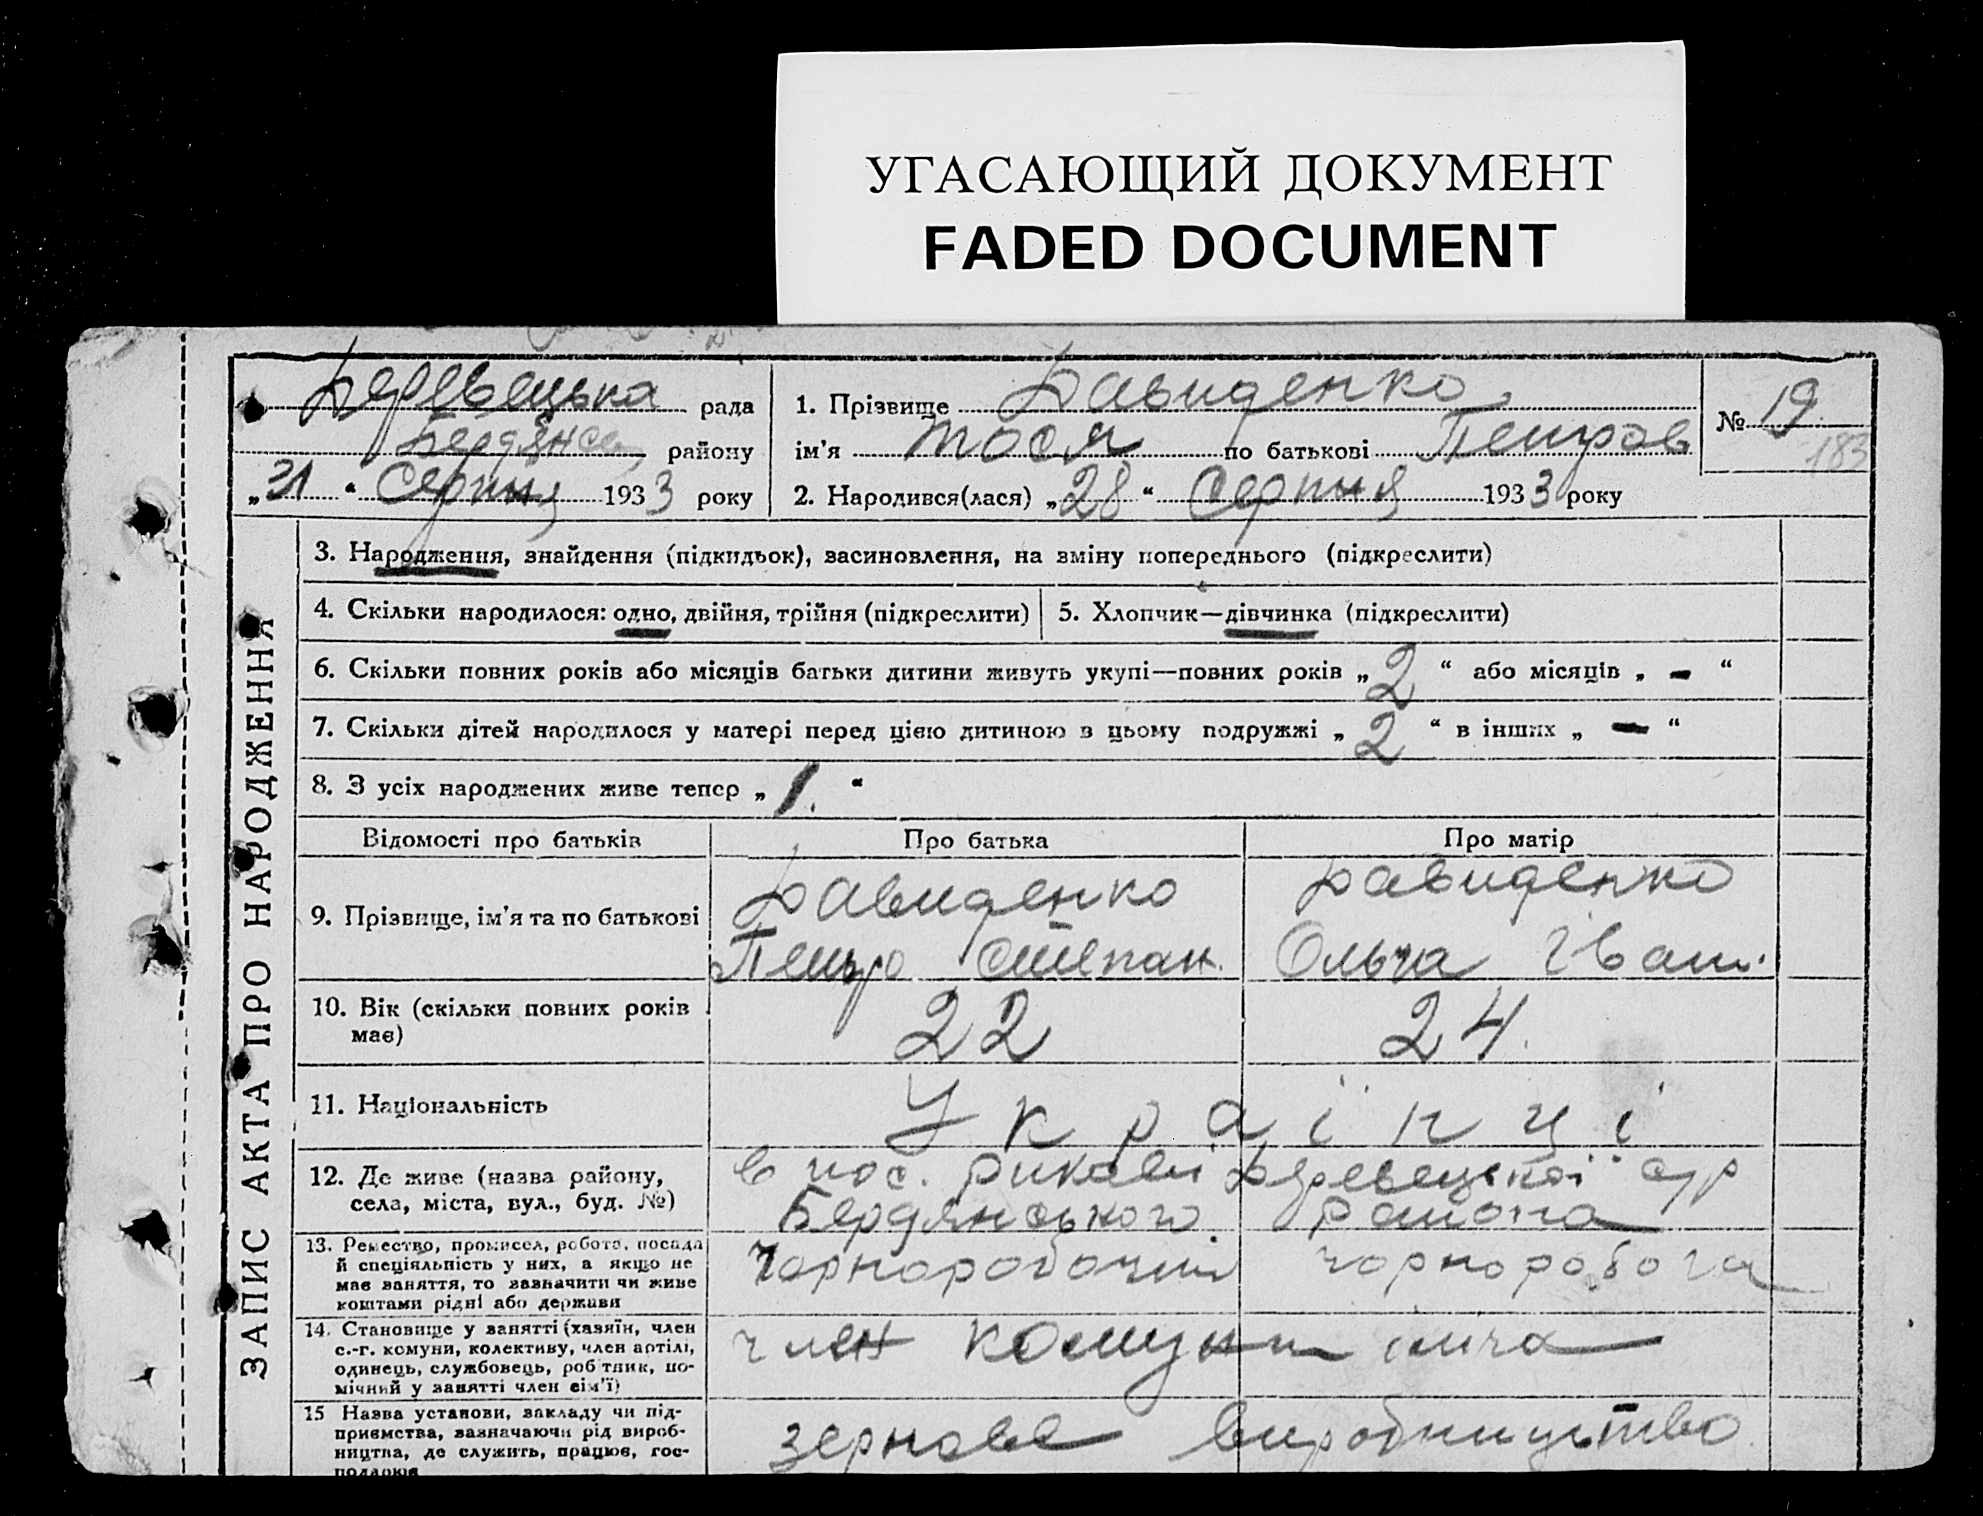 УГАСАЮЩИЙ ДОКУМЕНТ
FADED DOCUMENT
Деревецька рада
Бердянськ району
„31“ Серпня 1933 року
1. Прізвище Давиденко
ім'я Тося по батькові Петров
2. Народився(лася) „28“ Серпня 1933 року
№ 19
183
ЗАПИС АКТА ПРО НАРОДЖЕННЯ
3. Народження, знайдення (підкидьок), засиновлення, на зміну попереднього (підкреслити)
4. Скільки народилося: одно, двійня, трійня (підкреслити)
5. Хлопчик—дівчинка (підкреслити)
6. Скільки повних років або місяців батьки дитини живуть укупі—повних років „2“ або місяців „-“
7. Скільки дітей народилося у матері перед цією дитиною в цьому подружжі „2“ в інших „-“
8. З усіх народжених живе тепер „1.“
Відомості про батьків Про батька Про матір
9. Прізвище, ім'я та по батькові
Давиденко
Петро Степан.
Давиденко
Ольга Іван.
10. Вік (скільки повних років
має)
22
24.
11. Національність
Українці
12. Де живе (назва району,
села, міста, вул., буд. №)
в пос. Деревецької с/р
Бердянського району
13. Ремество, промисел, робота, посада
й спеціяльність у них, а якщо не
має заняття, то зазначити чи живе
коштами рідні або держави
Чорноробочий
чорноробоча
14. Становище у занятті (хазяїн, член
с.-г. комуни, колективу, член артілі,
одинець, службовець, робітник, по-
мічний у занятті член сім'ї)
член
15 Назва установи, закладу чи під-
приємства, зазначаючи рід вироб-
ництва, де служить, працює, гос-
подарює
зернове виробництво